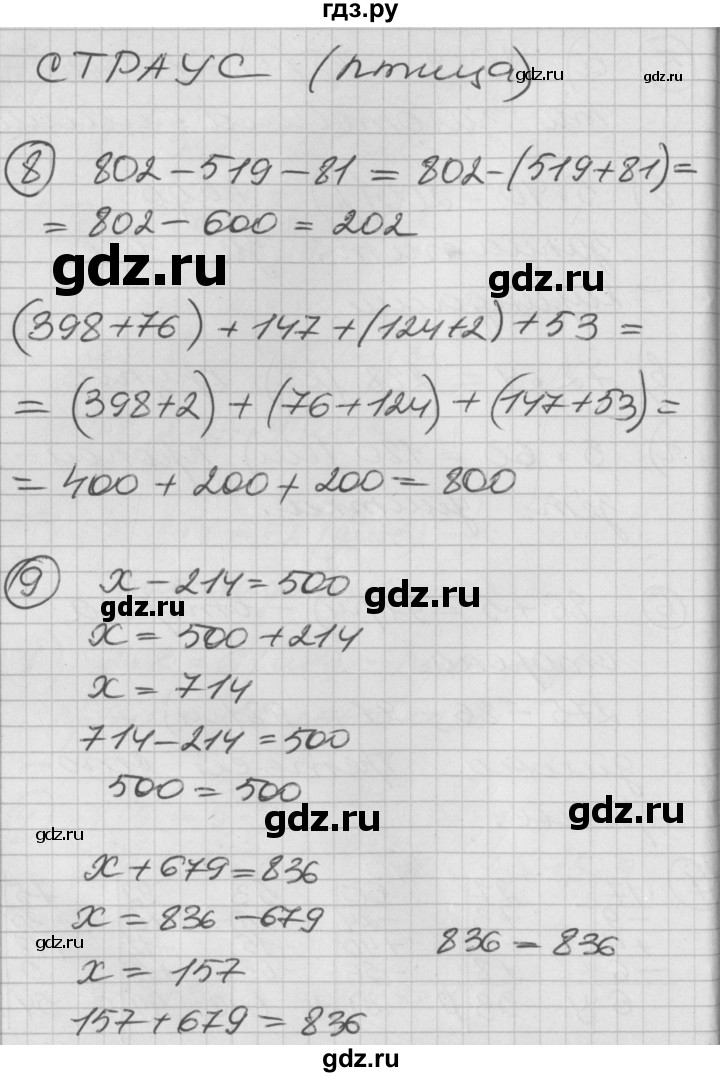 гдз.ру
СТРАУС (птица)
gdz.ru
gdz.ru
8 802-519-81=802-(519+81)=
=802-600=202
gdz.ru
gdz.ru
(398+76)+147+(124+2)+53=
=(398+2)+(76+124)+(147+53)=
=400+200+200=800
9 x-214=500
gdz.ru
gdz.ru
x=500+214
x=714
714-214=500
500=500
gdz.ru
gdz.ru
gdz.ru
x+679=836
x=836-679
gdz.ru
836=836
x=157
157+679=836
gdz.ru